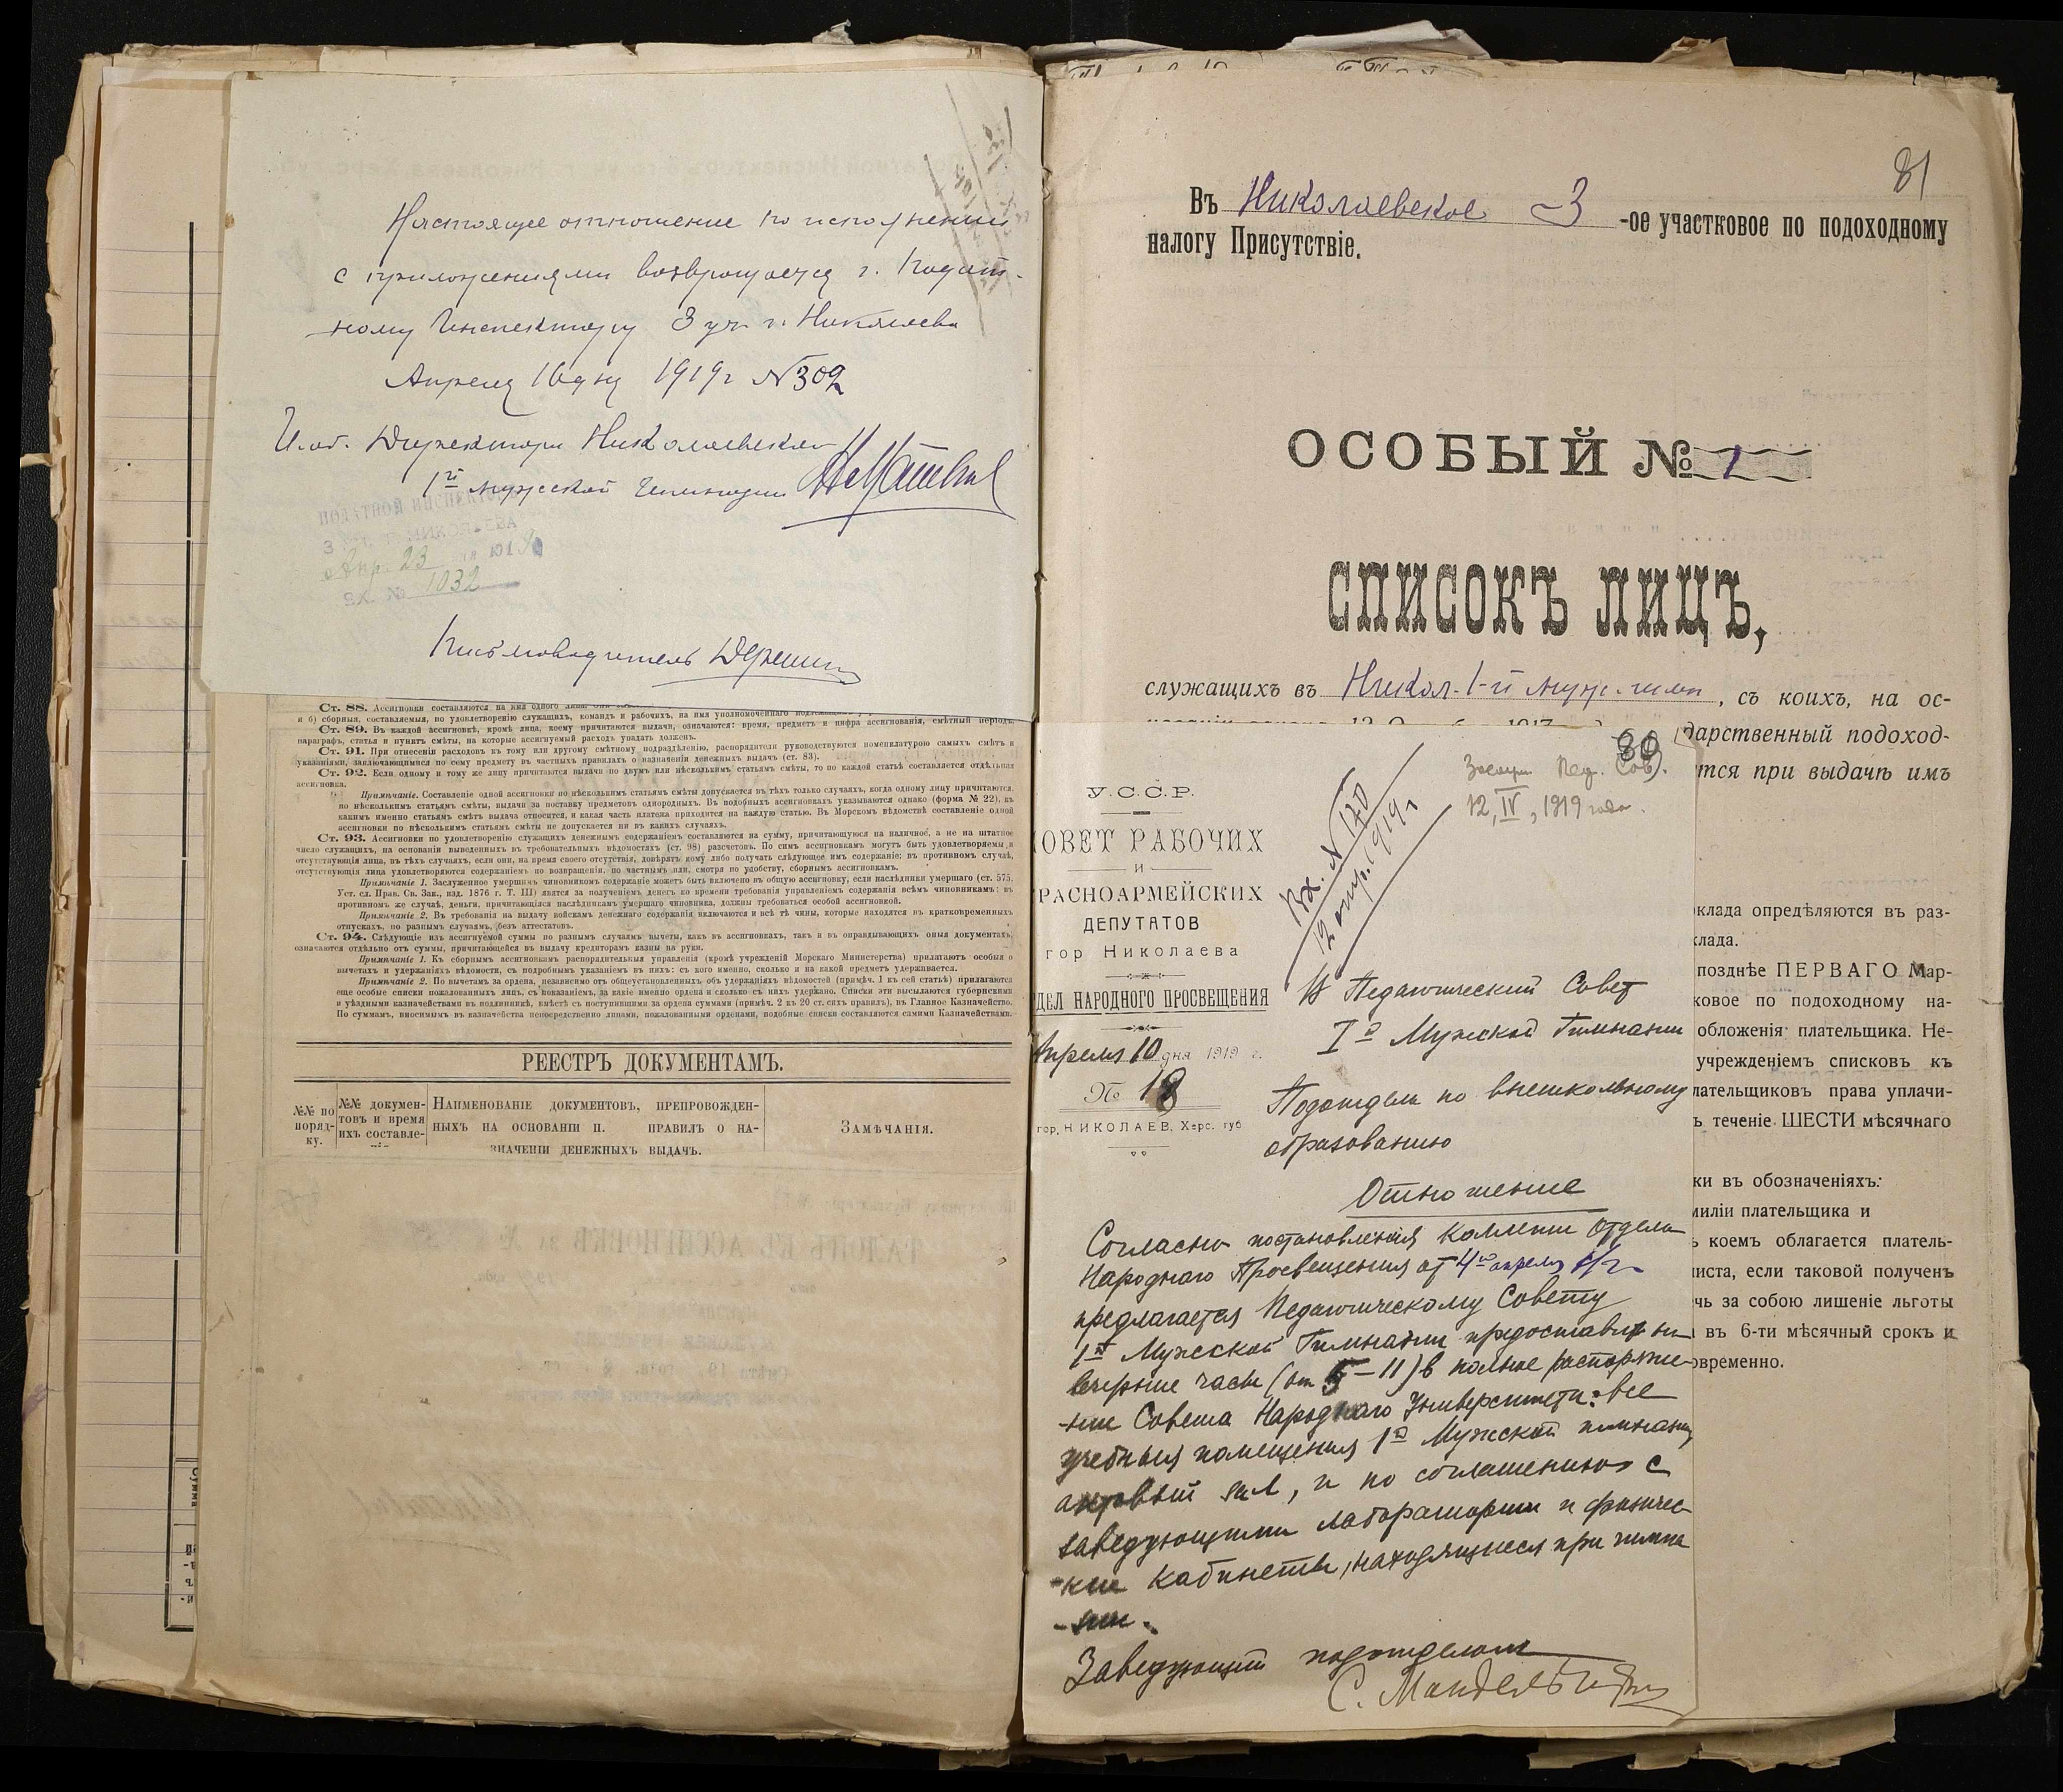 Настоящее отношение по исполнении
с приложениями возвращается г. Подат-
ному Инспектору 3 уч. г. Николаева
Апреля 16 дня 1919 г № 309
И. об. Директора Николаевской
1й мужской Гимназии
ПОДАТНОЙ ИНСПЕКТОР
3 УЧ. Г. НИКОЛАЕВА
Апр. 23 дня 1919
ВХ. № 1032
Письмоводитель
Ст. 88. Ассигновки составляются на имя одного лица
и б) сборныя, составляемыя, по удовлетворенію служащихъ, командъ и рабочихъ, на имя уполномоченнаго
Ст. 89. Въ каждой ассигновкѣ, кромѣ лица, коему причитаются выдачи, означаются: время, предметъ и цифра ассигнованія, смѣтный періодъ,
параграфъ, статья и пунктъ смѣты, на которые ассигнуемый расходъ упадать долженъ.
Ст. 91. При отнесеніи расходовъ къ тому или другому смѣтному подраздѣленію, распорядители руководствуются номенклатурою самыхъ смѣтъ и
указаніями, заключающимися по сему предмету въ частныхъ правилахъ о назначеніи денежныхъ выдачъ (ст. 83).
Ст. 92. Если одному и тому же лицу причитаются выдачи по двумъ или нѣсколькимъ статьямъ смѣты, то по каждой статьѣ составляется отдѣльная
ассигновка.
Примѣчаніе. Составленіе одной ассигновки по нѣсколькимъ статьямъ смѣты допускается въ тѣхъ только случаяхъ, когда одному лицу причитаются,
по нѣсколькимъ статьямъ смѣты, выдачи за поставку предметовъ однородныхъ. Въ подобныхъ ассигновкахъ указываются однако (форма № 22), къ
какимъ именно статьямъ смѣтъ выдача относится, и какая часть платежа приходится на каждую статью. Въ Морскомъ вѣдомствѣ составленіе одной
ассигновки по нѣсколькимъ статьямъ смѣты не допускается ни въ какихъ случаяхъ.
Ст. 93. Ассигновки по удовлетворенію служащихъ денежнымъ содержаніемъ составляются на сумму, причитающуюся на наличное, а не на штатное
число служащихъ, на основаніи выведенныхъ въ требовательныхъ вѣдомостяхъ (ст. 98) разсчетовъ. По симъ ассигновкамъ могутъ быть удовлетворяемы и
отсутствующія лица, въ тѣхъ случаяхъ, если они, на время своего отсутствія, довѣрятъ кому либо получать слѣдующее имъ содержаніе; въ противномъ случаѣ,
отсутствующія лица удовлетворяются содержаніемъ по возвращеніи, по частнымъ или, смотря по удобству, сборнымъ ассигновкамъ.
Примѣчаніе 1. Заслуженное умершимъ чиновникомъ содержаніе можетъ быть включено въ общую ассигновку, если наслѣдники умершаго (ст. 575,
Уст. сл. Прав. Св. Зак., изд. 1876 г. Т. III) явятся за полученіемъ денегъ ко времени требованія управленіемъ содержанія всѣмъ чиновникамъ; въ
противномъ же случаѣ, деньги, причитающіяся наслѣдникамъ умершаго чиновника, должны требоваться особой ассигновкой.
Примѣчаніе 2. Въ требованія на выдачу войскамъ денежнаго содержанія включаются и всѣ тѣ чины, которые находятся въ кратковременныхъ
отпускахъ, по разнымъ случаямъ, безъ аттестатовъ.
Ст. 94. Слѣдующіе изъ ассигнуемой суммы по разнымъ случаямъ вычеты, какъ въ ассигновкахъ, такъ и въ оправдывающихъ оныя документахъ,
означаются отдѣльно отъ суммы, причитающейся въ выдачу кредиторамъ казны на руки.
Примѣчаніе 1. Къ сборнымъ ассигновкамъ распорядительныя управленія (кромѣ учрежденій Морскаго Министерства) прилагаютъ особыя о
вычетахъ и удержаніяхъ вѣдомости, съ подробнымъ указаніемъ въ нихъ: съ кого именно, сколько и на какой предметъ удерживается.
Примѣчаніе 2. По вычетамъ за ордена, независимо отъ общеустановленныхъ объ удержаніяхъ вѣдомостей (примѣч. 1 къ сей статьѣ) прилагаются
еще особые списки пожалованныхъ лицъ, съ показаніемъ, за какіе именно ордена и сколько съ нихъ удержано. Списки эти высылаются губернскими
и уѣздными казначействами въ подлинникѣ, вмѣстѣ съ поступившими за ордена суммами (примѣч. 2 къ 20 ст. сихъ правилъ), въ Главное Казначейство.
По суммамъ, вносимымъ въ казначейства непосредственно лицами, пожалованными орденами, подобные списки составляются самими Казначействами.
РЕЕСТРЪ ДОКУМЕНТАМЪ.
№№ по поряд-ку.
№№ докумен-товъ и время ихъ составле-нія.
Наименованіе документовъ, препровожден-ныхъ на основаніи п. правилъ о на-значеніи денежныхъ выдачъ.
Замѣчанія.
81
Въ Николаевское 3 -ое участковое по подоходному
налогу Присутствіе.
ОСОБЫЙ № 1
СПИСОКЪ ЛИЦЪ,
служащихъ въ Никол. 1-й муж. гимн., съ коихъ, на ос-
дарственный подоход-
тся при выдачѣ имъ
80
Заслуш. Пед. Сов.
12, IV, 1919 года.
Вх. № 170
12 апр. 1919 г
У.С.С.Р.
СОВЕТ РАБОЧИХ
И
КРАСНОАРМЕЙСКИХ
ДЕПУТАТОВ
гор Николаева
ОТДЕЛ НАРОДНОГО ПРОСВЕЩЕНИЯ
Апреля 10 дня 1919 г.
№ 18
гор. НИКОЛАЕВ, Херс. губ.
В Педагогический Совет
Iй Мужской Гимназии
Подотдела по внешкольному
образованию
Отношение
Согласно постановления коллегии Отдела
Народнаго Просвещения от 4го апреля с/г.
предлагается Педагогическому Совету
1й Мужской Гимназии предоставить на
вечерние часы (от 5 – 11) в полное распоряже-
-ние Совета Народнаго Университета: все
учебныя помещения 1й Мужской гимназии,
актовый зал, и по соглашению с
заведующими лаборатории и физичес-
-кие кабинеты, находящиеся при гимна
-зии.
Заведующий подотделом
С. Мандельб
клада опредѣляются въ раз-
клада.
позднѣе ПЕРВАГО Мар-
ковое по подоходному на-
обложенія плательщика. Не-
учрежденіемъ списковъ къ
лательщиковъ права уплачи-
ъ теченіе ШЕСТИ мѣсячнаго
ки въ обозначеніяхъ:
миліи плательщика и
ъ коемъ облагается платель-
листа, если таковой полученъ
чь за собою лишеніе льготы
въ 6-ти мѣсячный срокъ и
овременно.